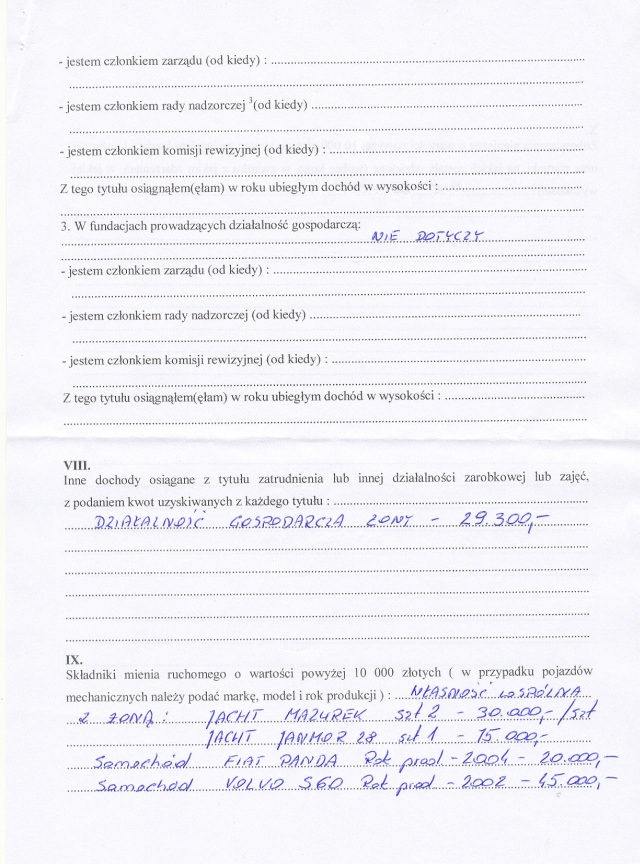 - jestem członkiem zarządu (od kiedy) : ..........
..........
- jestem członkiem rady nadzorczej ³(od kiedy) ..........
..........
- jestem członkiem komisji rewizyjnej (od kiedy) : ..........
..........
Z tego tytułu osiągnąłem(ęłam) w roku ubiegłym dochód w wysokości : ..........
..........
3. W fundacjach prowadzących działalność gospodarczą:
NIE DOTYCZY
..........
- jestem członkiem zarządu (od kiedy) : ..........
..........
- jestem członkiem rady nadzorczej (od kiedy) ..........
..........
- jestem członkiem komisji rewizyjnej (od kiedy) : ..........
..........
Z tego tytułu osiągnąłem(ęłam) w roku ubiegłym dochód w wysokości : ..........
..........
VIII.
Inne dochody osiągane z tytułu zatrudnienia lub innej działalności zarobkowej lub zajęć,
z podaniem kwot uzyskiwanych z każdego tytułu : ..........
DZIAŁALNOŚĆ GOSPODARCZA ŻONY - 29.300,-
..........
..........
..........
..........
IX.
Składniki mienia ruchomego o wartości powyżej 10 000 złotych ( w przypadku pojazdów
mechanicznych należy podać markę, model i rok produkcji ) : WŁASNOŚĆ WSPÓLNA
Z ŻONĄ : JACHT MAZUREK szt 2 - 30.000,-/szt
JACHT JANMOR 28 szt 1 - 75.000,-
Samochód FIAT PANDA Rok prod - 2004 - 20.000,-
Samochód VOLVO S60 Rok prod - 2002 - 45.000,-